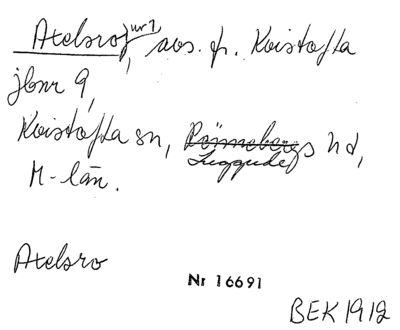 Atelsro nr 1, avs. fr. Kvistofta
jbnr 9,
Kvistofta sn, Rönnebergs hd,
Luggude
M-län.
Atelsro
Nr 16691
BEK 1912